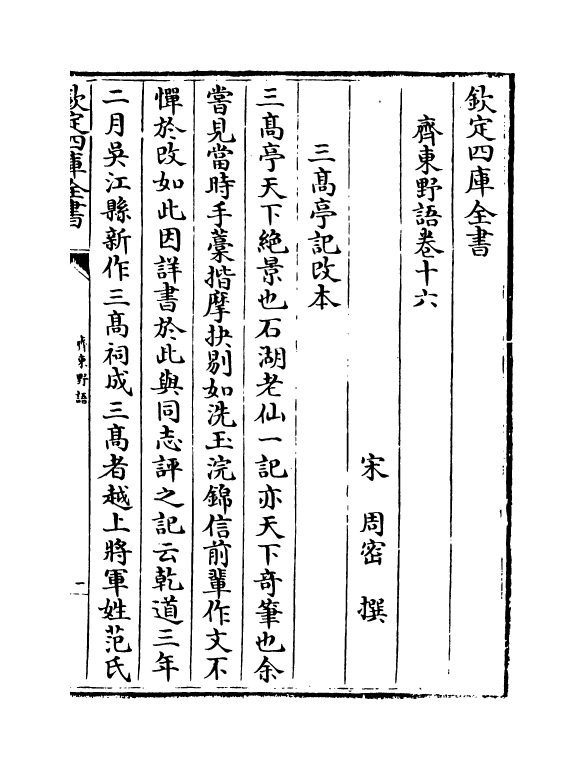 欽定四庫全書
齊東野語卷十六
宋　周密　撰
三髙亭記改本
三髙亭天下絶景也石湖老仙一記亦天下竒筆也余
嘗見當時手藁揩摩抉剔如洗玉浣錦信前輩作文不
憚於改如此因詳書於此與同志評之記云乾道三年
二月吳江縣新作三髙祠成三髙者越上將軍姓范氏
欽定四庫全書
齊東野語
一